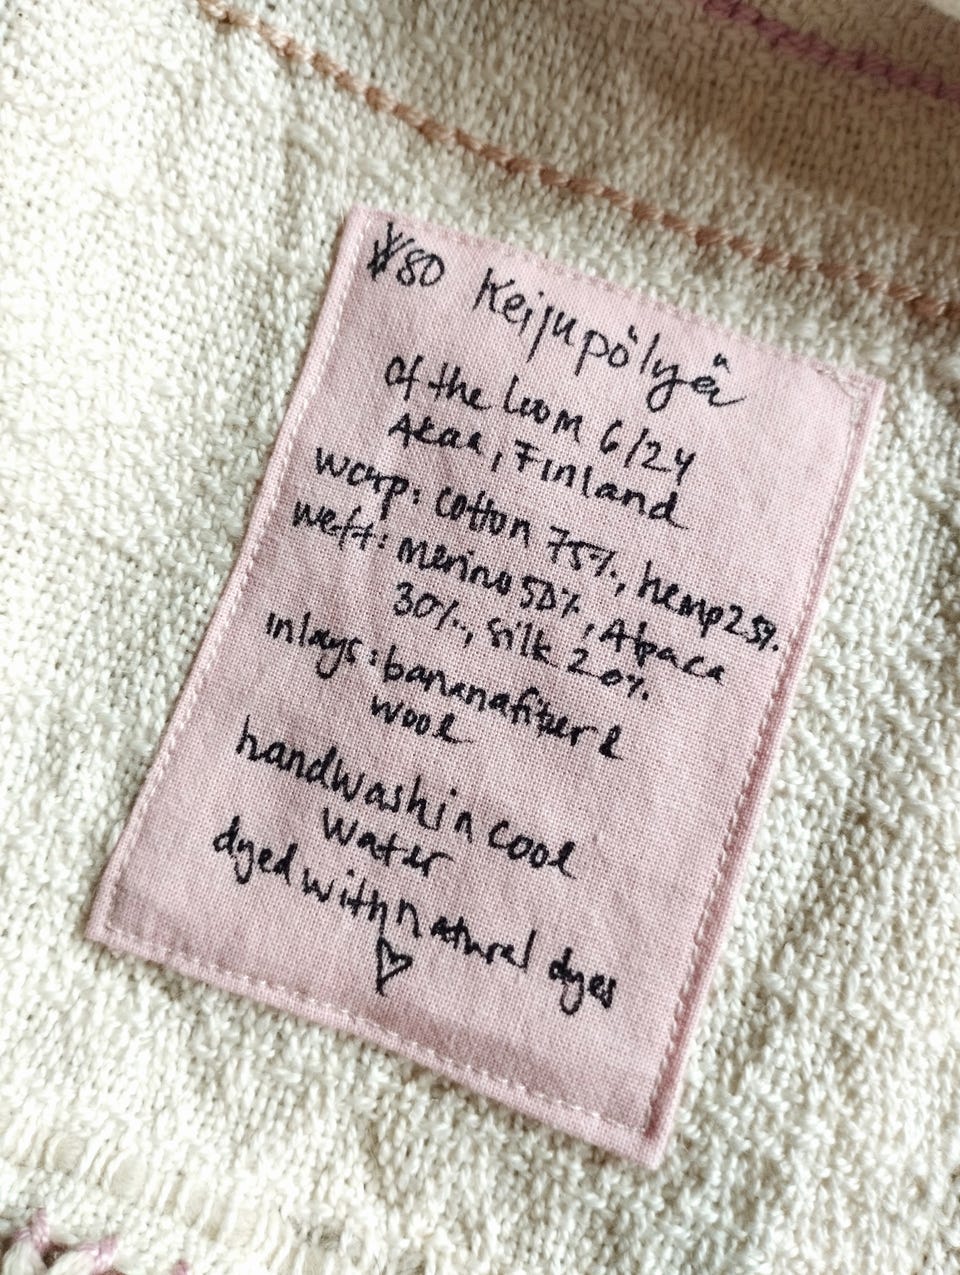 #80 Keijupölyä
Of the loom 6/24
Akaa, Finland
warp: cotton 75%, hemp 25%
weft: merino 50%, Alpaca
30%, silk 20%
inlays: bananafiber &
wool
handwash in cool
water
dyed with natural dyes
♡